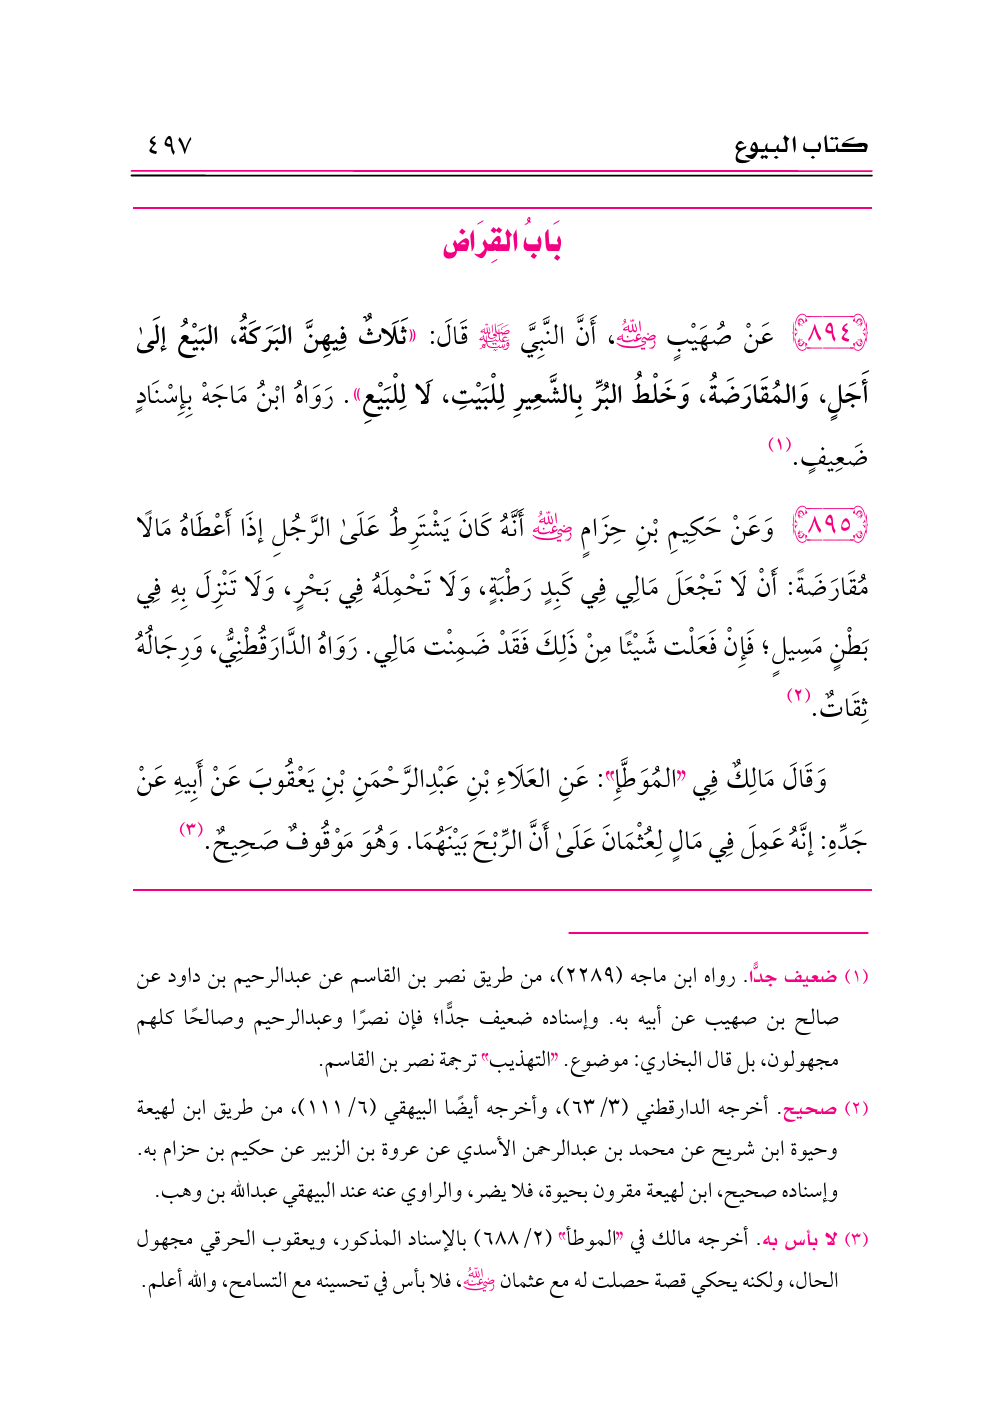 كتاب البيوع ٤٩٧
بَابُ القِرَاض
٨٩٤ عَنْ صُهَيْبٍ رضي الله عنه، أَنَّ النَّبِيَّ ﷺ قَالَ: «ثَلَاثٌ فِيهِنَّ البَرَكَةُ، البَيْعُ إلَىٰ
أَجَلٍ، وَالمُقَارَضَةُ، وَخَلْطُ البُرِّ بِالشَّعِيرِ لِلْبَيْتِ، لَا لِلْبَيْعِ». رَوَاهُ ابْنُ مَاجَهْ بِإِسْنَادٍ
ضَعِيفٍ.(١)
٨٩٥ وَعَنْ حَكِيمِ بْنِ حِزَامٍ رضي الله عنه أَنَّهُ كَانَ يَشْتَرِطُ عَلَىٰ الرَّجُلِ إذَا أَعْطَاهُ مَالًا
مُقَارَضَةً: أَنْ لَا تَجْعَلَ مَالِي فِي كَبِدٍ رَطْبَةٍ، وَلَا تَحْمِلَهُ فِي بَحْرٍ، وَلَا تَنْزِلَ بِهِ فِي
بَطْنِ مَسِيلٍ؛ فَإِنْ فَعَلْت شَيْئًا مِنْ ذَلِكَ فَقَدْ ضَمِنْت مَالِي. رَوَاهُ الدَّارَقُطْنِيُّ، وَرِجَالُهُ
ثِقَاتٌ.(٢)
وَقَالَ مَالِكٌ فِي "المُوَطَّإِ": عَنِ العَلَاءِ بْنِ عَبْدِالرَّحْمَنِ بْنِ يَعْقُوبَ عَنْ أَبِيهِ عَنْ
جَدِّهِ: إنَّهُ عَمِلَ فِي مَالٍ لِعُثْمَانَ عَلَىٰ أَنَّ الرِّبْحَ بَيْنَهُمَا. وَهُوَ مَوْقُوفٌ صَحِيحٌ.(٣)
(١) ضعيف جدًّا. رواه ابن ماجه (٢٢٨٩)، من طريق نصر بن القاسم عن عبدالرحيم بن داود عن
صالح بن صهيب عن أبيه به. وإسناده ضعيف جدًّا؛ فإن نصرًا وعبدالرحيم وصالحًا كلهم
مجهولون، بل قال البخاري: موضوع. "التهذيب" ترجمة نصر بن القاسم.
(٢) صحيح. أخرجه الدارقطني (٣/ ٦٣)، وأخرجه أيضًا البيهقي (٦/ ١١١)، من طريق ابن لهيعة
وحيوة ابن شريح عن محمد بن عبدالرحمن الأسدي عن عروة بن الزبير عن حكيم بن حزام به.
وإسناده صحيح، ابن لهيعة مقرون بحيوة، فلا يضر، والراوي عنه عند البيهقي عبدالله بن وهب.
(٣) لا بأس به. أخرجه مالك في "الموطأ" (٢/ ٦٨٨) بالإسناد المذكور، ويعقوب الحرقي مجهول
الحال، ولكنه يحكي قصة حصلت له مع عثمان رضي الله عنه، فلا بأس في تحسينه مع التسامح، والله أعلم.